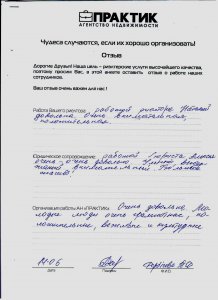 ПРАКТИК
АГЕНТСТВО НЕДВИЖИМОСТИ
Чудеса случаются, если их хорошо организовать!
Отзыв
Дорогие Друзья! Наша цель – риэлторские услуги высочайшего качества,
поэтому просим Вас, в этой анкете оставить отзыв о работе наших
сотрудников.
Ваш отзыв очень важен для нас!
Работа Вашего риэлтора работой риэлтора Натальей
довольна. Очень внимательная,
положительная.
Юридическое сопровождение работой юриста
очень, очень довольна.
внимательный
Организация работы АН «ПРАКТИК» Очень довольна.
люди очень грамотные,
вежливые и культурные
14-06
Дата
Подпись
Ф.И.О.